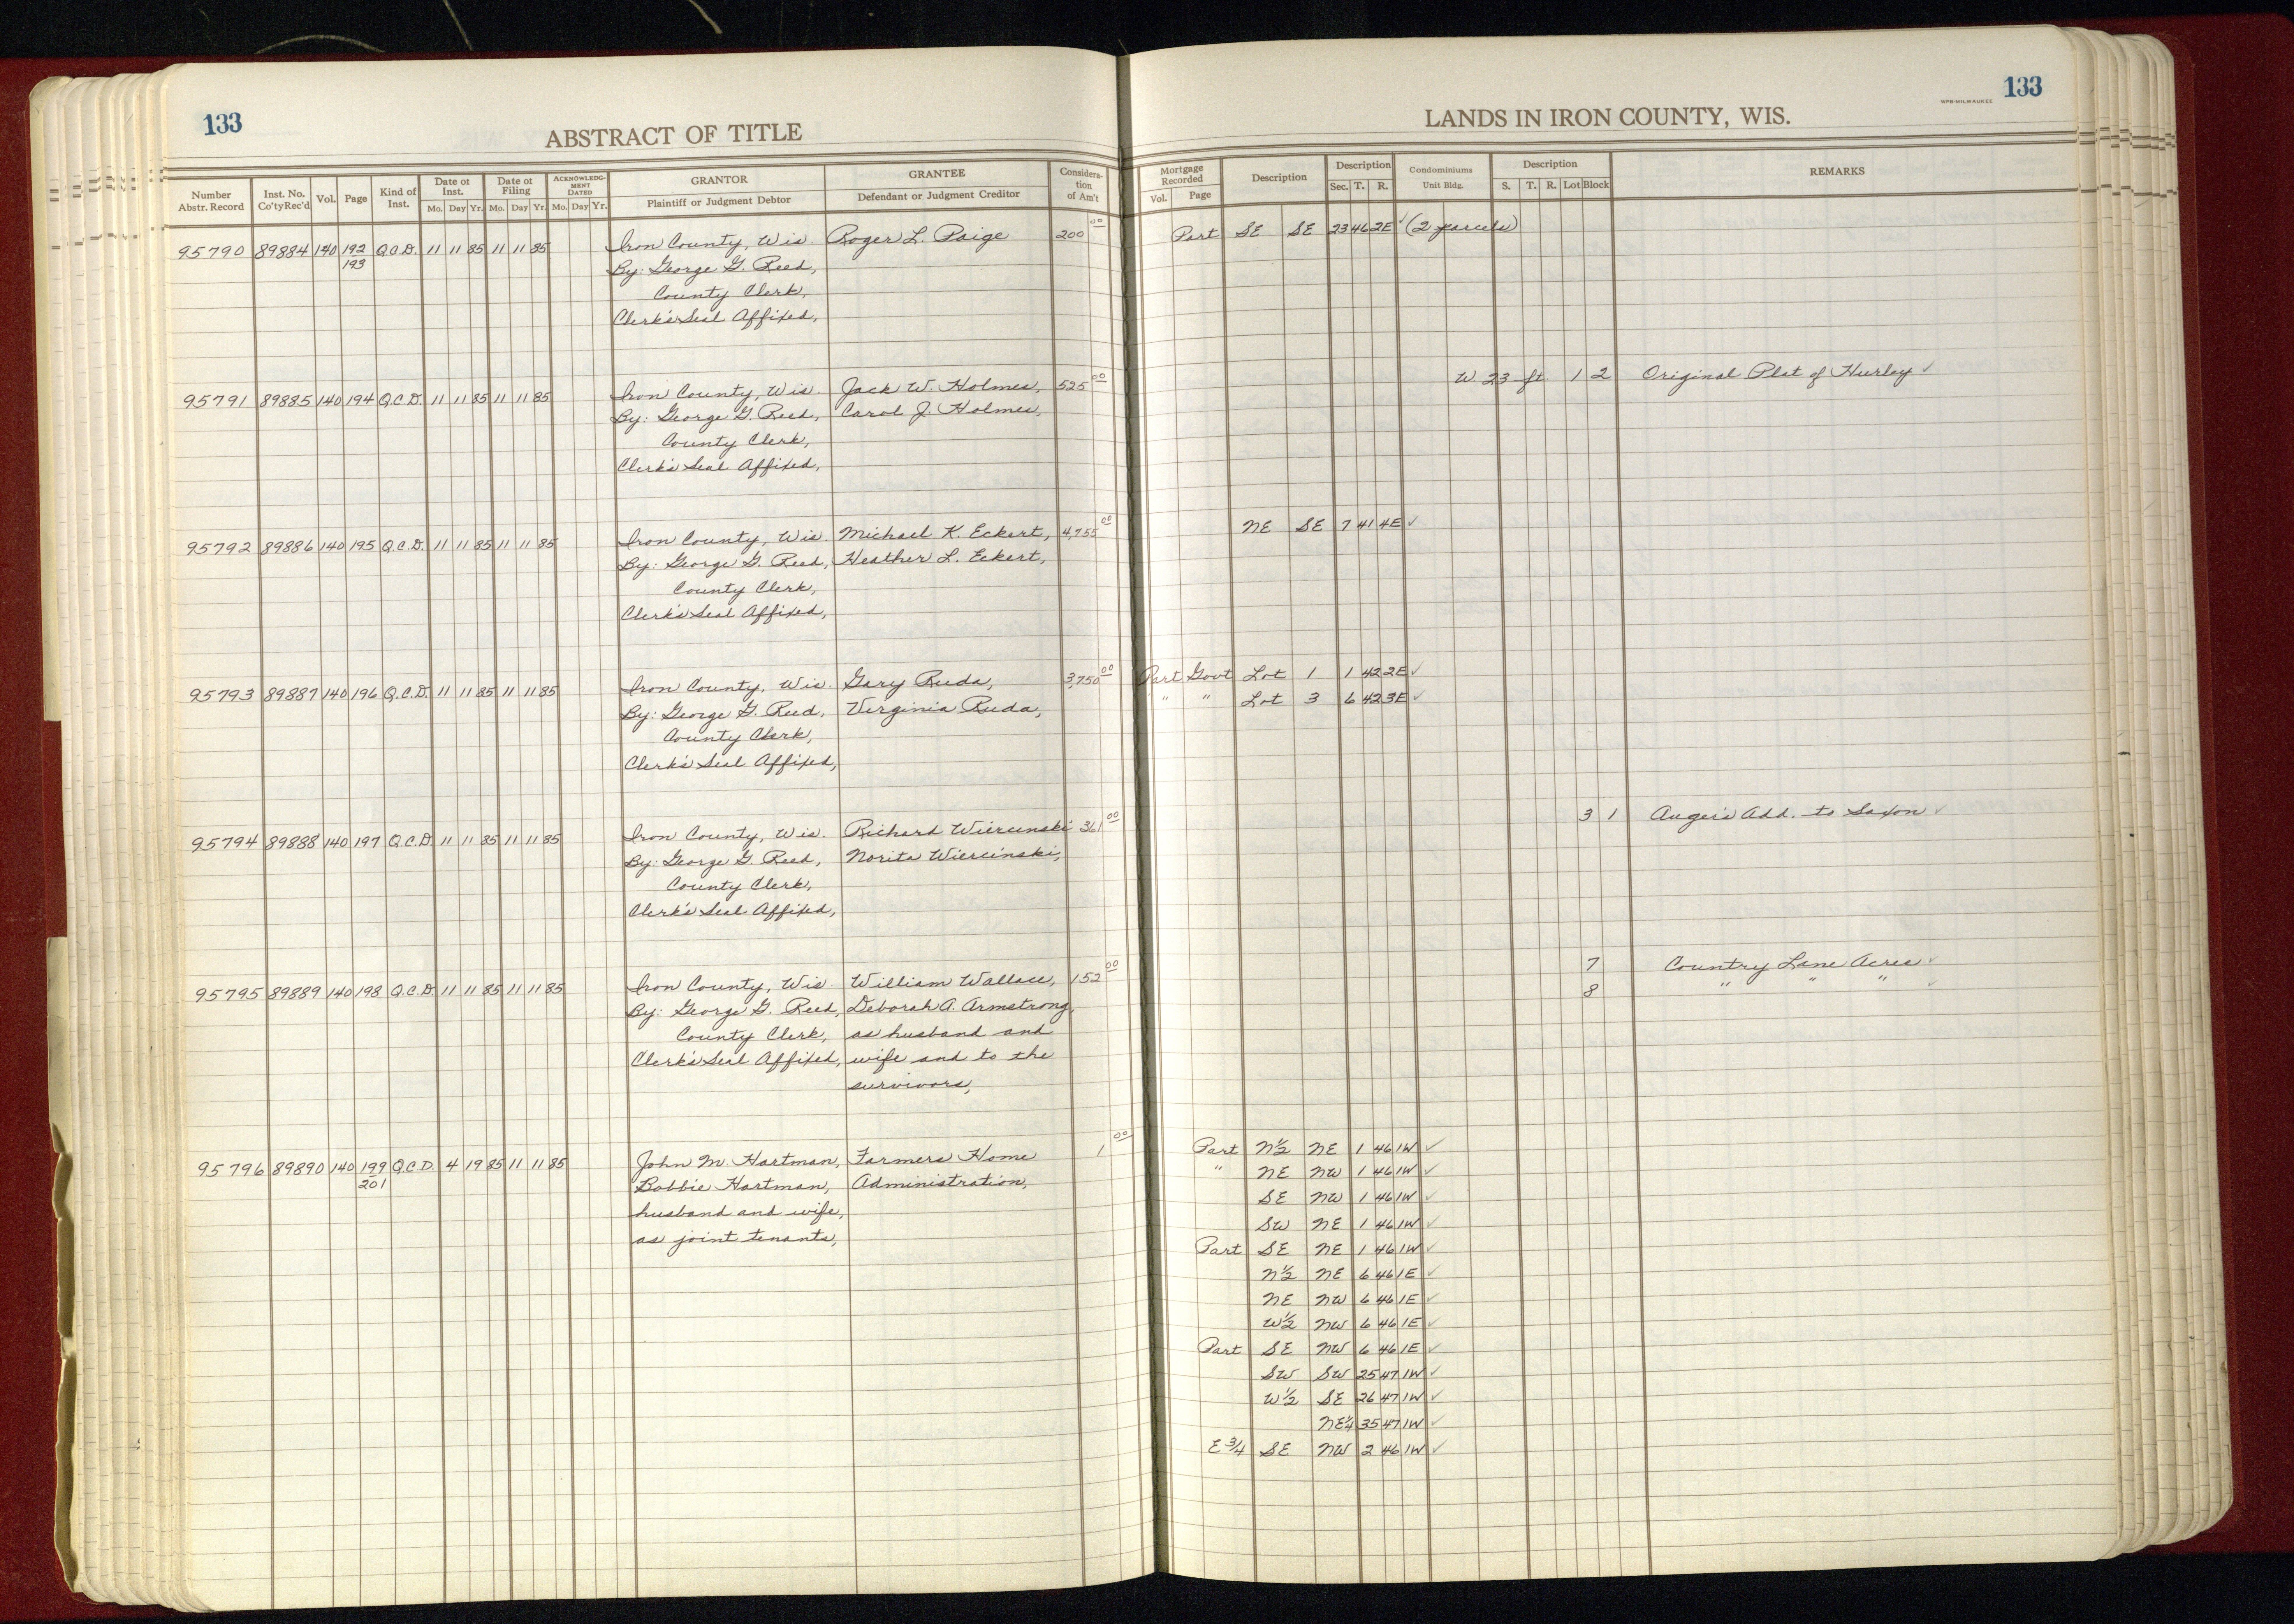 133
ABSTRACT OF TITLE
Number Abstr. Record | Inst. No. Co'ty Rec'd | Vol. | Page | Kind of Inst. | Date of Inst. Mo. Day Yr. | Date of Filing Mo. Day Yr. | ACKNOWLEDGMENT DATED Mo. Day Yr. | GRANTOR Plaintiff or Judgment Debtor | GRANTEE Defendant or Judgment Creditor | Consideration of Am't
95790 89884 140 192 Q.C.D. 11 11 85 11 11 85 Iron County, Wis. Roger L. Paige 200 00
193 By: George G. Reed,
County Clerk,
Clerk's Seal Affixed,
95791 89885 140 194 Q.C.D. 11 11 85 11 11 85 Iron County, Wis. Jack W. Holmes, 525 00
By: George G. Reed, Carol J. Holmes,
County Clerk,
Clerk's Seal Affixed,
95792 89886 140 195 Q.C.D. 11 11 85 11 11 85 Iron County, Wis. Michael K. Eckert, 4,755 00
By: George G. Reed, Heather L. Eckert,
County Clerk,
Clerk's Seal Affixed,
95793 89887 140 196 Q.C.D. 11 11 85 11 11 85 Iron County, Wis. Gary Ruda, 3,750 00
By: George G. Reed, Virginia Ruda,
County Clerk,
Clerk's Seal Affixed,
95794 89888 140 197 Q.C.D. 11 11 85 11 11 85 Iron County, Wis. Richard Wiercinski 361 00
By: George G. Reed, Norita Wiercinski,
County Clerk,
Clerk's Seal Affixed,
95795 89889 140 198 Q.C.D. 11 11 85 11 11 85 Iron County, Wis. William Wallace, 152 00
By: George G. Reed, Deborah A. Armstrong,
County Clerk, as husband and
Clerk's Seal Affixed, wife and to the
survivors,
95796 89890 140 199 Q.C.D. 4 19 85 11 11 85 John M. Hartman, Farmers Home 1 00
201 Bobbie Hartman, Administration,
husband and wife,
as joint tenants,
WPB-MILWAUKEE 133
LANDS IN IRON COUNTY, WIS.
Mortgage Recorded Vol. Page | Description | Description Sec. T. R. | Condominiums Unit Bldg. | Description S. T. R. Lot Block | REMARKS
Part SE SE 23 46 2E ✓ (2 parcels)
W 23 ft 1 2 Original Plat of Hurley ✓
NE SE 7 41 4E ✓
Part Govt Lot 1 1 42 2E ✓
" " Lot 3 6 42 3E ✓
3 1 Auger's Add. to Saxon ✓
7 Country Lane Acres ✓
8 " " " ✓
Part N½ NE 1 46 1W ✓
" NE NW 1 46 1W ✓
SE NW 1 46 1W ✓
SW NE 1 46 1W ✓
Part SE NE 1 46 1W ✓
N½ NE 6 46 1E ✓
NE NW 6 46 1E ✓
W½ NW 6 46 1E ✓
Part SE NW 6 46 1E ✓
SW SW 25 47 1W ✓
W½ SE 26 47 1W ✓
NE¼ 35 47 1W ✓
E¾ SE NW 2 46 1W ✓